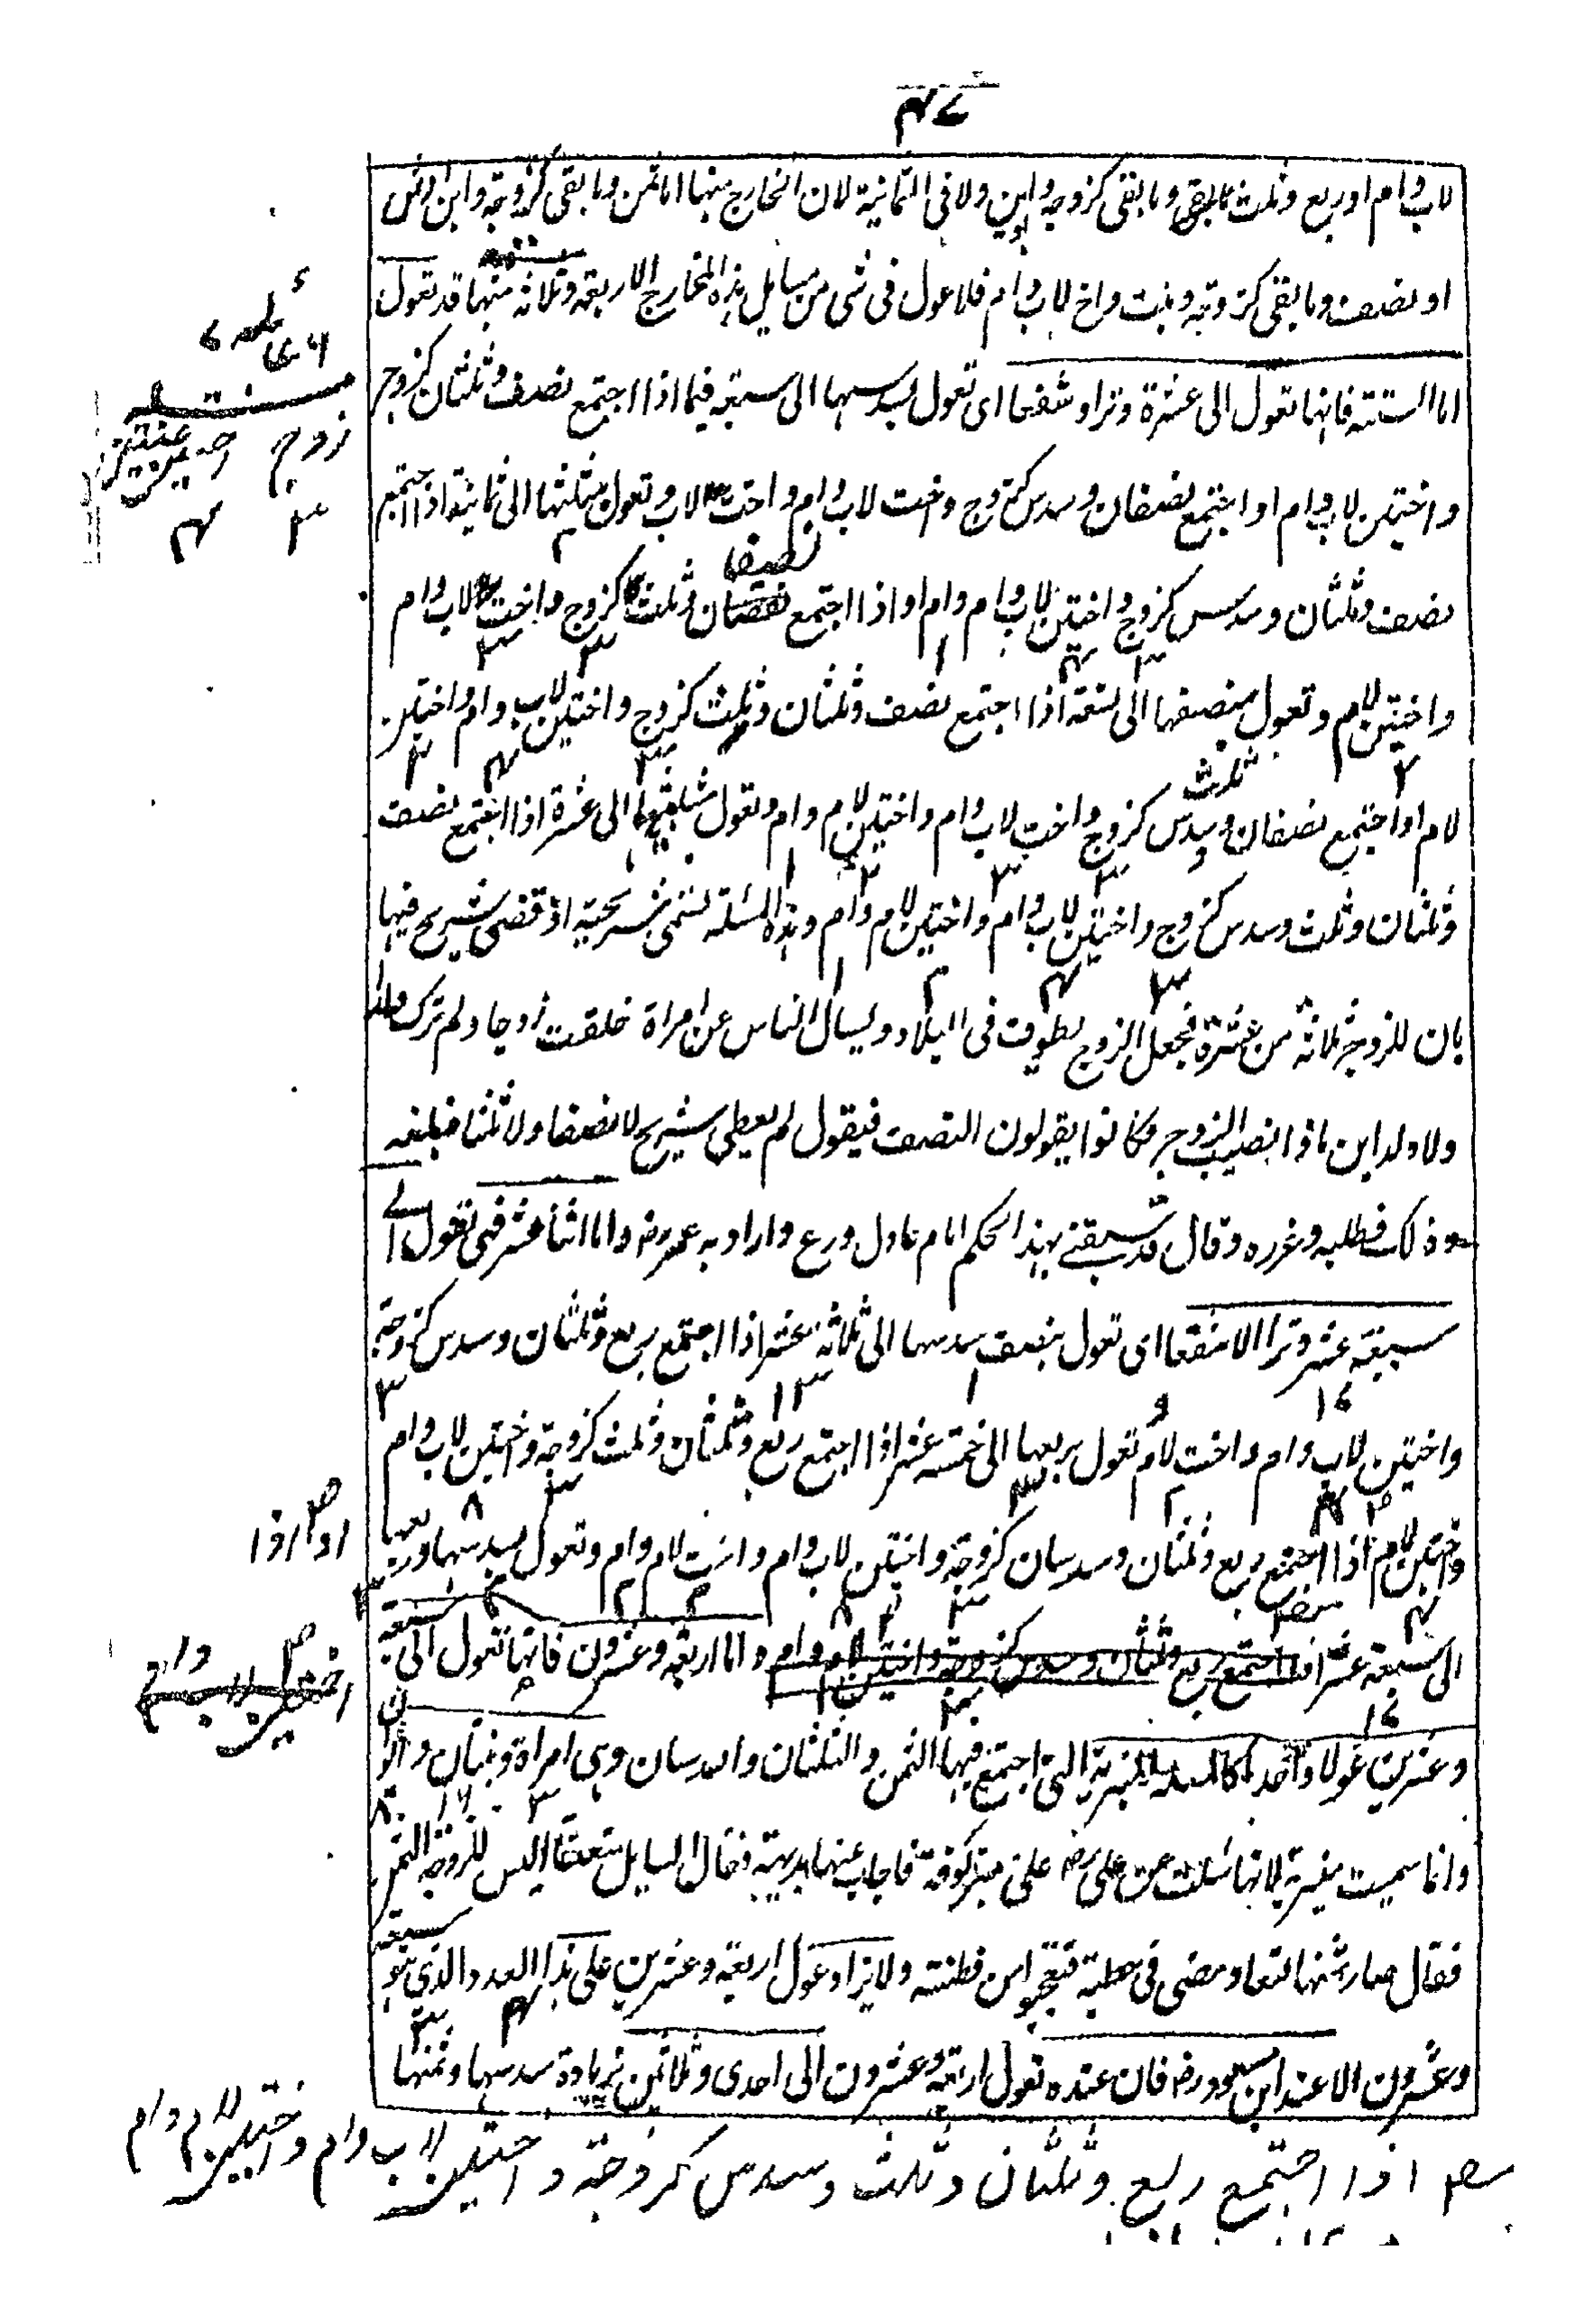 ٤٧
لاب وام او ربع وثلث ما يبقى وما بقى كزوجة وابوين ولا فى الثمانية لان الخارج منها اما ثمن وما بقى كزوجة وابن او ثمن
او نصف وما بقى كزوجة وبنت واخ لاب وام فلا عول فى شى من مسايل هذه المخارج الاربعة وثلاثة منها قد تعول
اما الستة فانها تعول الى عشرة وترا وشفعا اى تعول بسدسها الى سبعة فيما اذا اجتمع نصف وثلثان كزوج
واختين لاب وام او اجتمع نصفان وسدس كزوج واخت لاب وام واخت لاب وتعول بثلثها الى ثمانية اذا اجتمع
نصف وثلثان وسدس كزوج واختين لاب وام وام او اذا اجتمع نصفان وثلث كزوج واخت لاب وام
واختين لام وتعول بنصفها الى تسعة اذا اجتمع نصف وثلثان وثلث كزوج واختين لاب وام واختين
لام او اجتمع نصفان وثلث وسدس كزوج واخت لاب وام واختين لام وام وتعول بثلثيها الى عشرة اذا اجتمع نصف
وثلثان وثلث وسدس كزوج واختين لاب وام واختين لام وام وهذه المسئلة تسمى شريحية اذ قضى شريح فيها
بان للزوج ثلاثة من عشرة فجعل الزوج يطوف فى البلاد ويسال الناس عن امراة خلقت زوجا ولم تترك ولدا
ولا ولد ابن ماذا نصيب الزوج فكانوا يقولون النصف فيقول لم يعطى شريح لا نصفا ولا ثلثا فبلغه
ذلك فطلبه وعزره وقال قد سبقنى بهذا الحكم امام عادل ورع واراد به عمر رض واما اثنا عشر فهى تعول الى
سبعة عشر وترا لا شفعا اى تعول بنصف سدسها الى ثلاثة عشر اذا اجتمع ربع وثلثان وسدس كزوجة
واختين لاب وام واخت لام وتعول بربعها الى خمسة عشر اذا اجتمع ربع وثلثان وثلث كزوجة واختين لاب وام
واختين لام اذا اجتمع ربع وثلثان وسدسان كزوجة واختين لاب وام واخت لام وام وتعول بسدسها وربعها
الى سبعة عشر اذا اجتمع ربع وثلثان وسدس كزوجة واختين لام وام واما اربعة وعشرون فانها تعول الى سبعة
وعشرين عولا واحدا كالمسئلة المنبرية التى اجتمع فيها الثمن والثلثان والسدسان وهى امراة وبنتان وابوان
وانما سميت منبرية لانها سئلت عن على رض على منبر كوفة فاجاب عنها بديهة فقال السايل متعنتا اليس للزوجة الثمن
فقال صار ثمنها تسعا ومضى فى خطبته فتعجبوا من فطنته ولا يزاد عول اربعة وعشرين على هذا العدد الذى هو سبعة
وعشرون الا عند ابن مسعود رض فان عنده تعول اربعة وعشرون الى احدى وثلاثين بزيادة سدسها وثمنها
زوج
٣
٤
او اذا
اختين لاب وام
اذا اجتمع ربع وثلثان وثلث وسدس كزوجة واختين لاب وام واختين لام وام